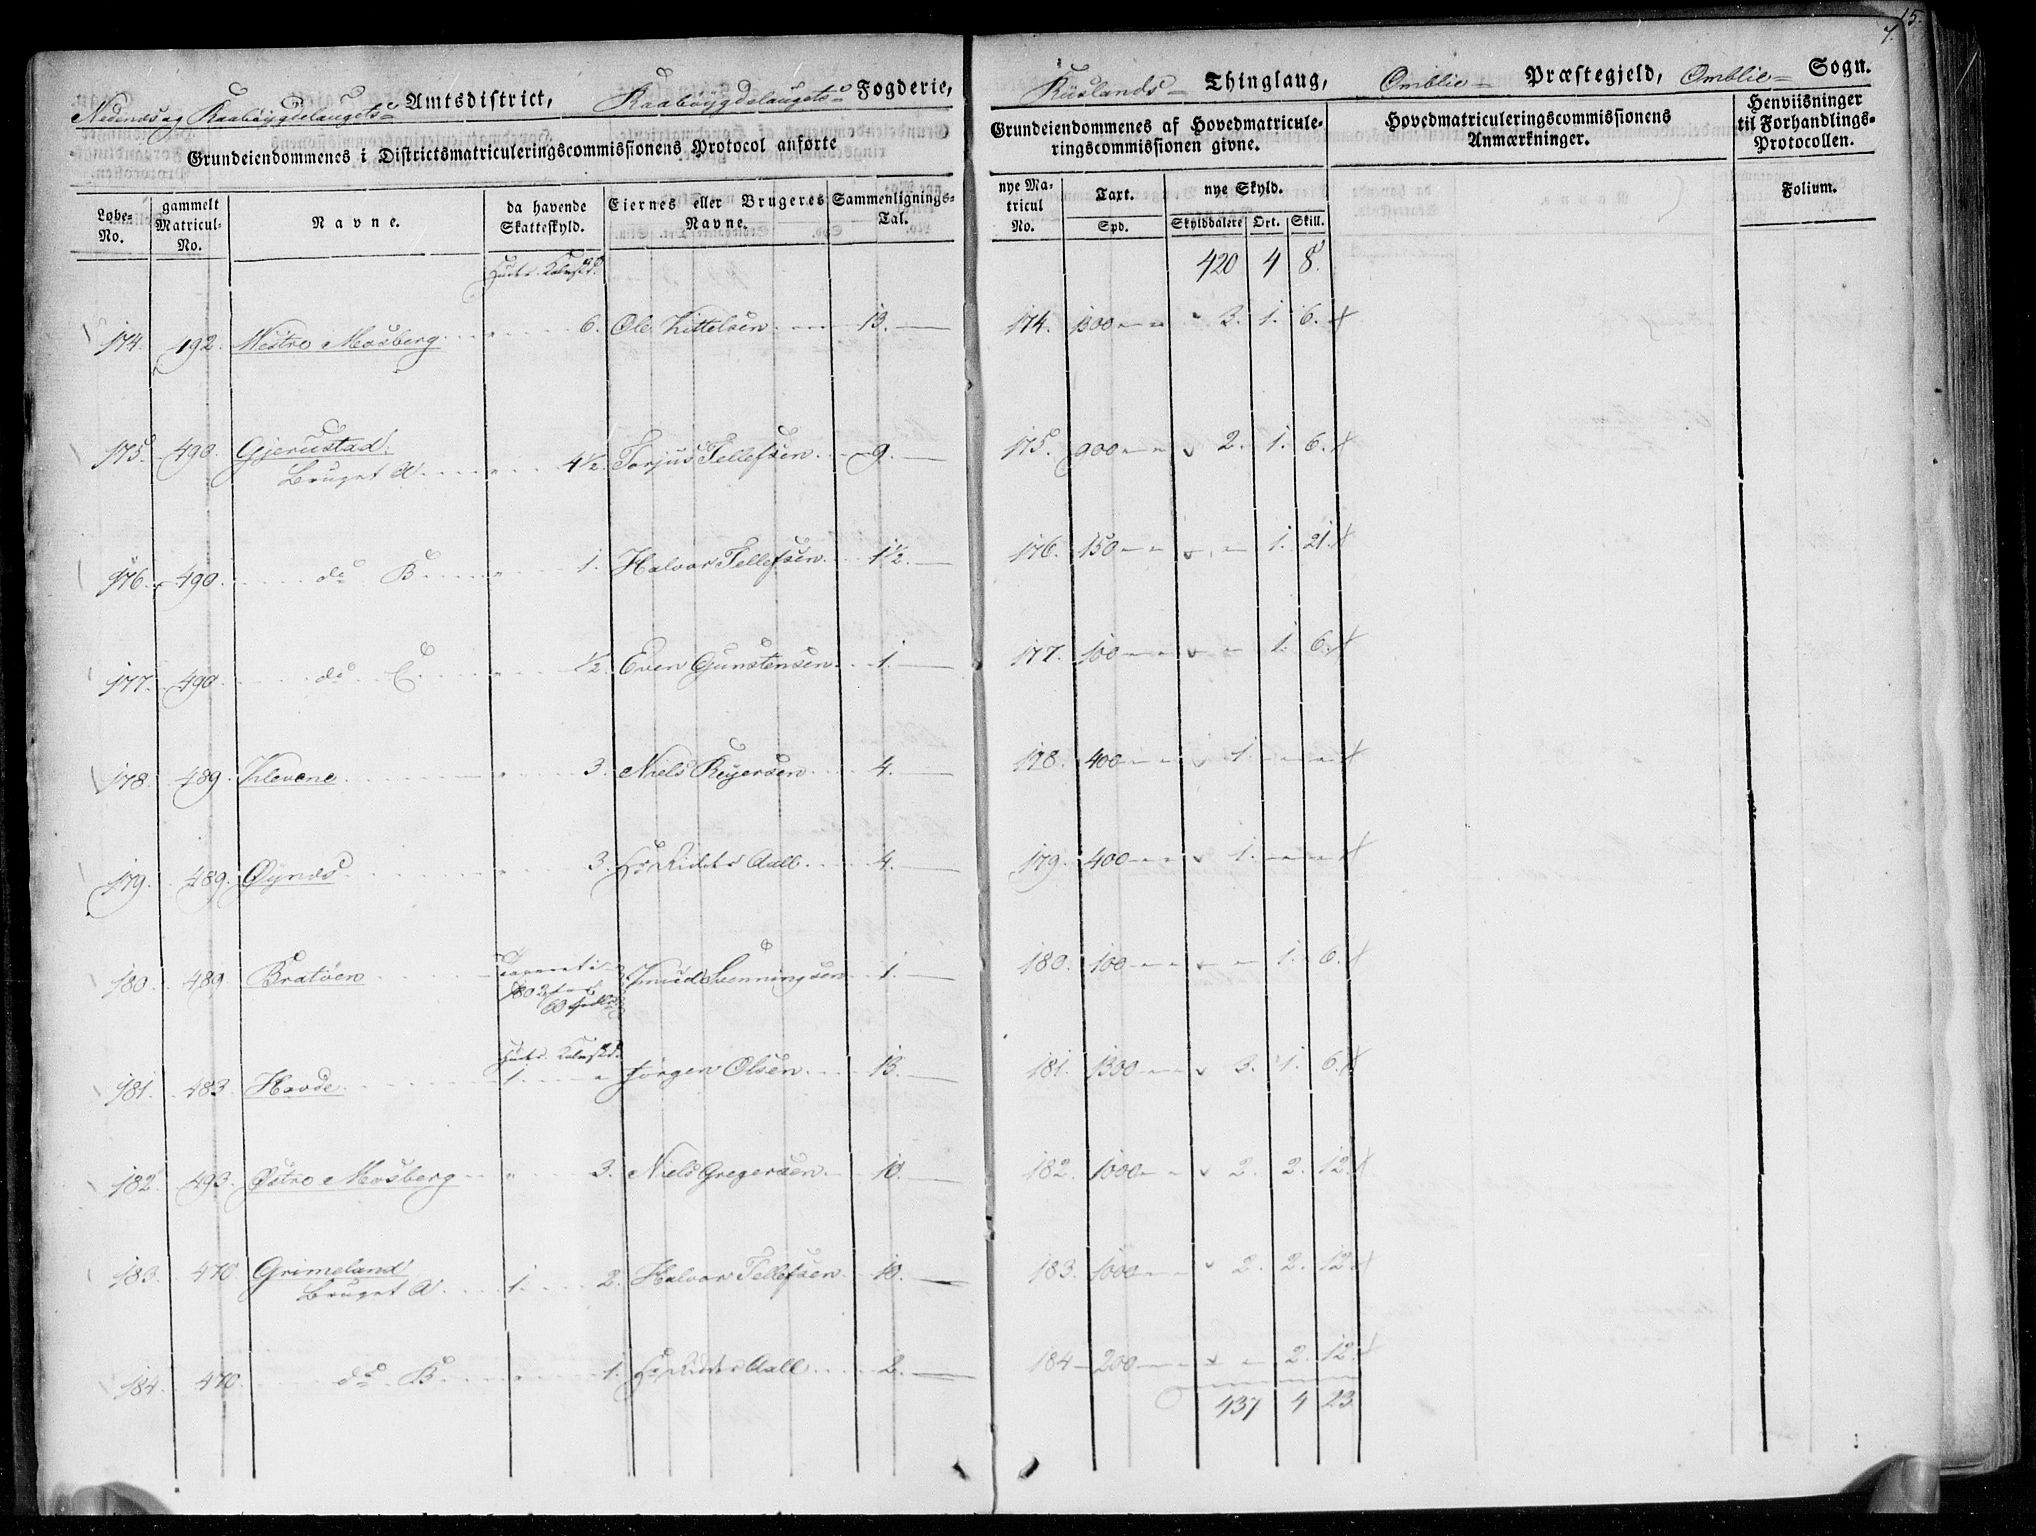 15.
7.
Nedenæs og Raabøygdelaugets Amtsdistrict, Raabøygdelaugets Fogderie,
Grundeiendommenes i Districtsmatriculeringscommissionens Protocol anførte
Løbe-No. gammelt Matricul-No. Navne. da havende Skatteskyld. Eiernes eller Brugeres Navne. Sammenlignings-Tal.
174. 192. Westre Mosberg 6. Ole Kittelsen 13.
175. 490. Gjerustad
Bruget A 4½. Torjus Tellefsen 9.
176. 490. do B 1. Halvor Tellefsen 1½.
177. 490. do C ½. Even Gunstensen 1.
178. 489. Klevene 3. Niels Reyersen 4.
179. 489. Øynæs 3. Hr Ridder Aall 4.
180. 489. Bratøen 1802 Knud Svenningsen 1.
181. 483. Hovde 1. Jørgen Olsen 13.
182. 493. Østre Mosberg 3. Niels Gregersen 10.
183. 470. Grimeland
Bruget A 1. 2. Halvor Tellefsen 10.
184. 470. do B 1. Hr Ridder Aall 2.
Thinglaug, Omblie Præstegjeld, Omblie Sogn.
Grundeiendommenes af Hovedmatriculeringscommissionen givne. Hovedmatriculeringscommissionens Anmærkninger. Henviisninger til Forhandlings-Protocollen.
nye Matricul No. Taxt. Spd. nye Skyld. Skylddalere Ort. Skill. Folium.
420 4 8.
174. 1300 3. 1. 6.
175. 900 2. 1. 6.
176. 150 1. 21.
177. 100 1. 6.
178. 400 1.
179. 400 1.
180. 100 1. 6.
181. 1300 3. 1. 6.
182. 1000 2. 2. 12.
183. 1000 2. 2. 12.
184 200 2. 12.
437 4 23